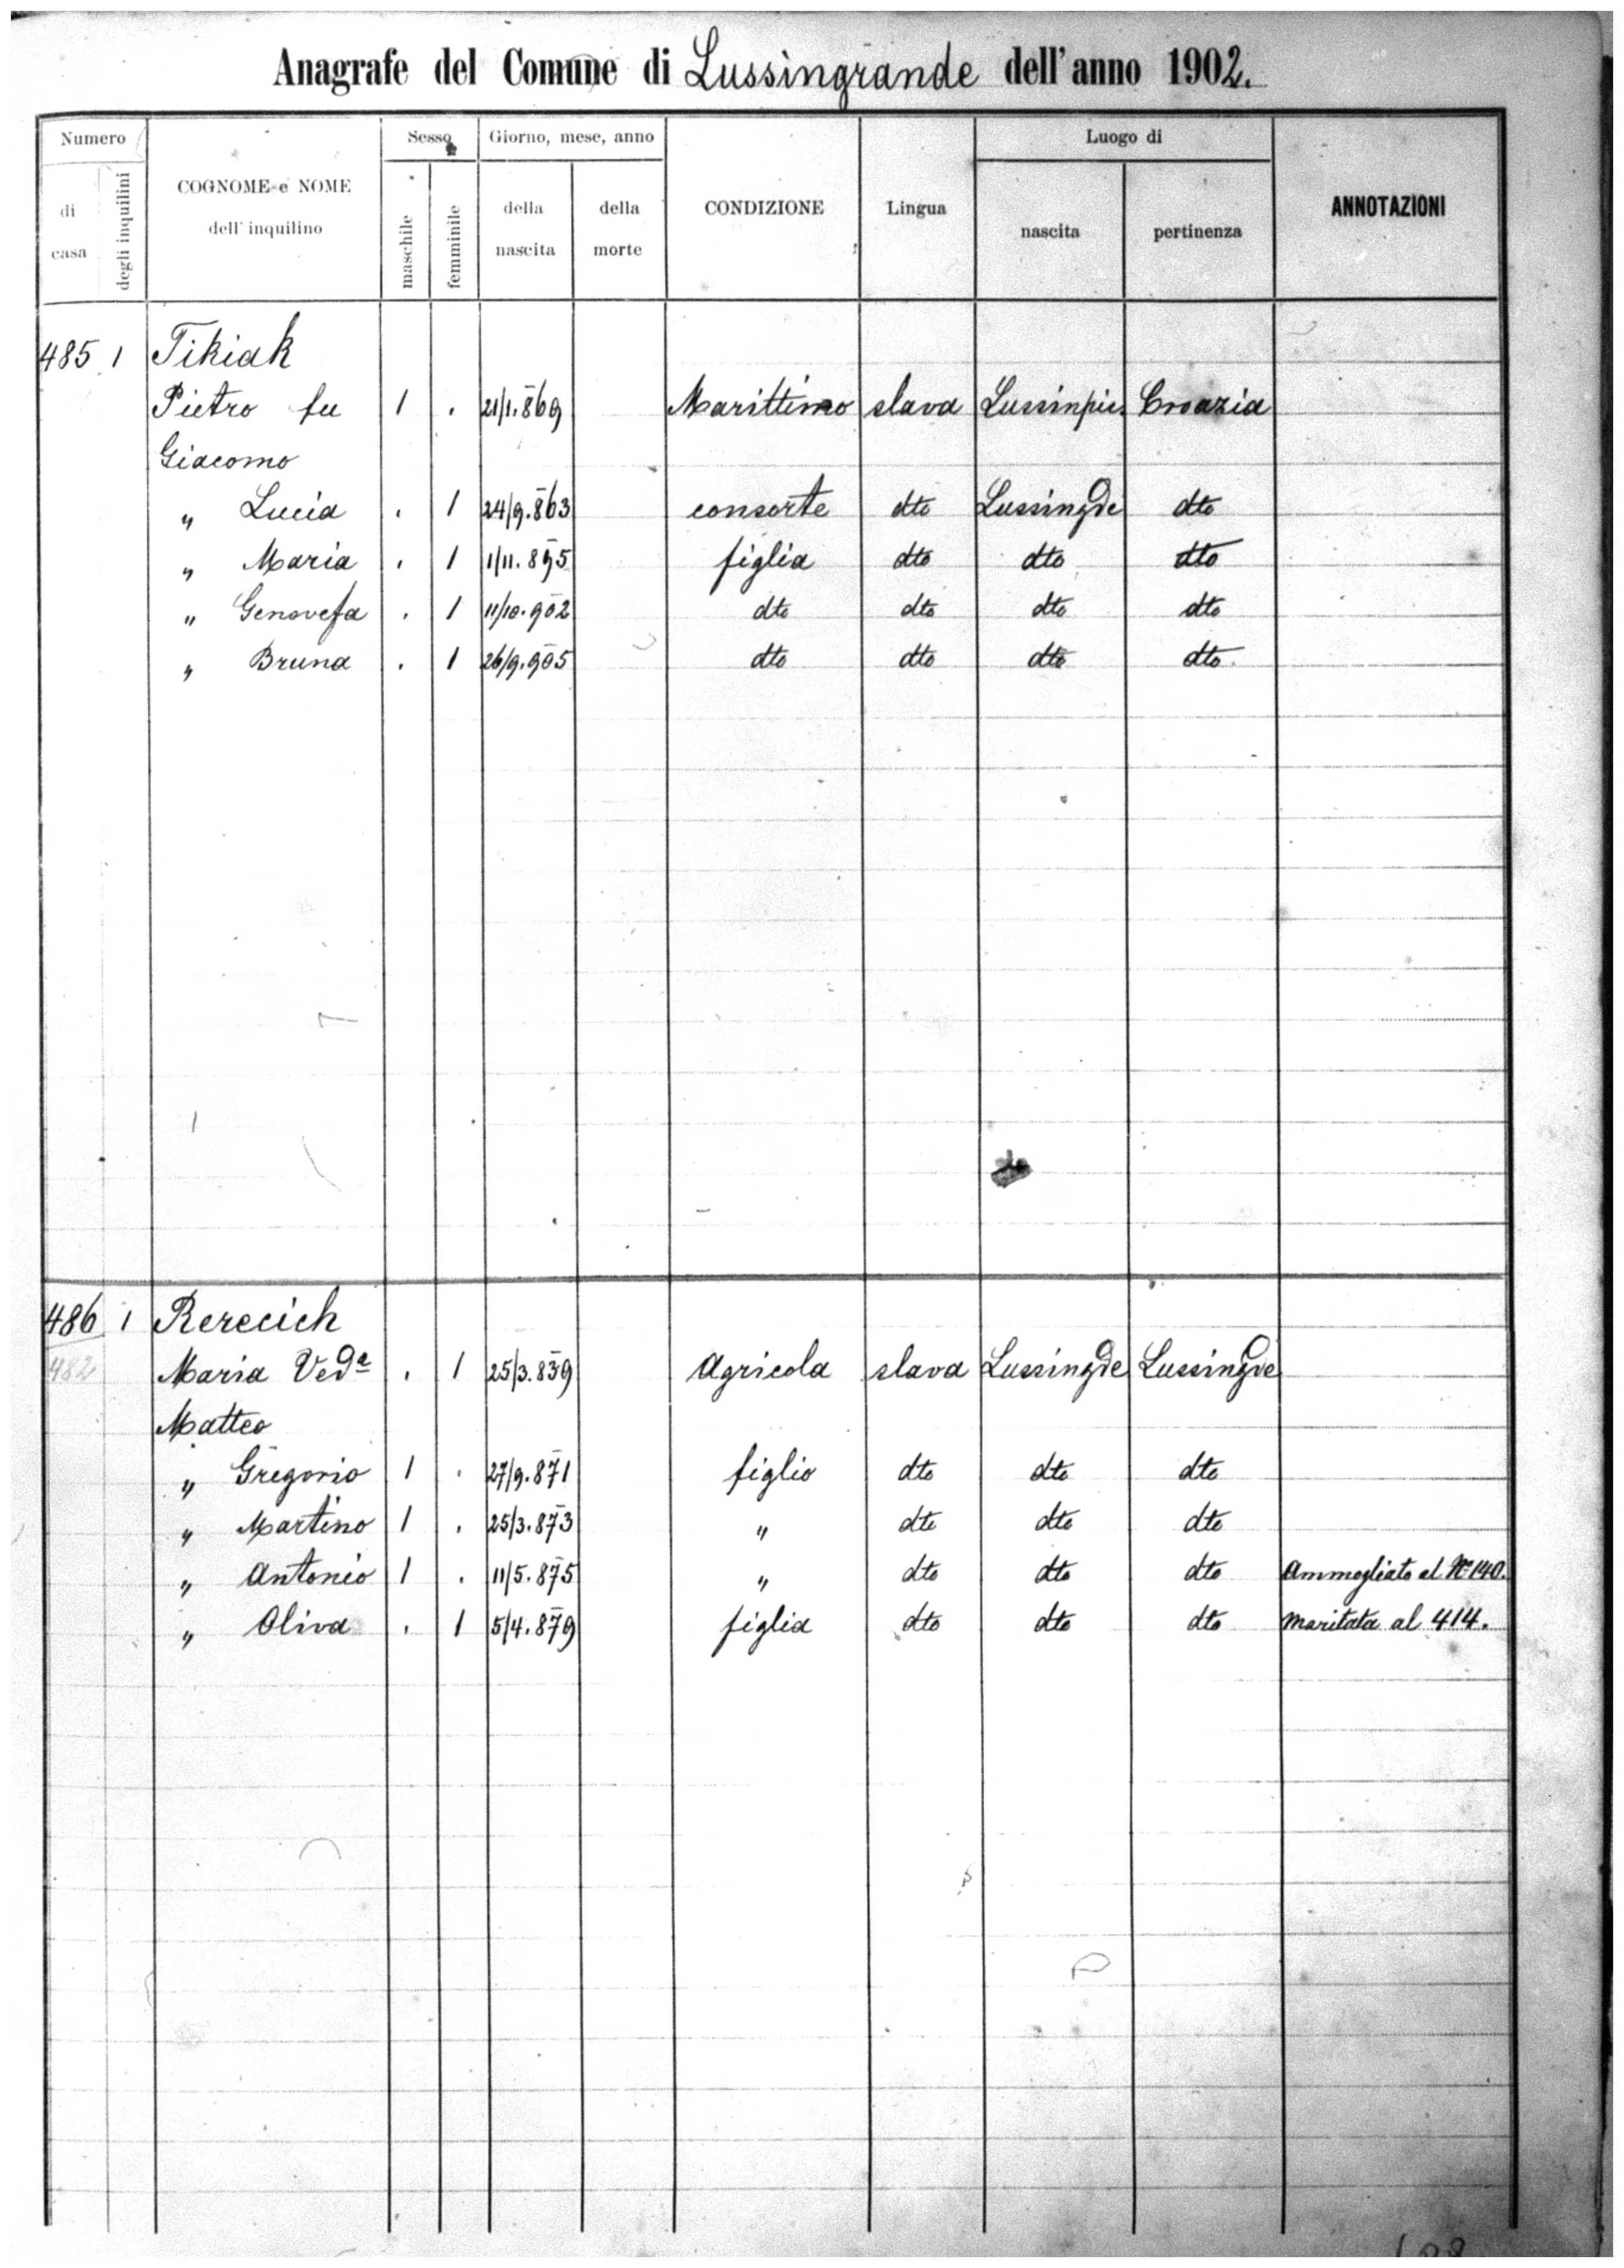 Anagrafe del Comune di Lussingrande dell'anno 1902.
Numero Sesso Giorno, mese, anno Luogo di
di casa degli inquilini COGNOME e NOME dell' inquilino maschile femminile della nascita della morte CONDIZIONE Lingua nascita pertinenza ANNOTAZIONI
485 1 Tikiak
Pietro fu 1 . 21/1.869 Marittimo slava Lussinpic. Croazia
Giacomo
" Lucia . 1 24/9.863 consorte dto Lussingde dto
" Maria . 1 1/11.895 figlia dto dto dto
" Genovefa . 1 11/10.902 dto dto dto dto
" Bruna . 1 26/9.905 dto dto dto dto
486 1 Rerecich
482 Maria Veda . 1 25/3.839 Agricola slava Lussingde Lussingde
Matteo
" Gregorio 1 . 27/9.871 figlio dto dto dto
" Martino 1 . 25/3.873 " dto dto dto
" Antonio 1 . 11/5.875 " dto dto dto Ammogliato al No 140.
" Oliva . 1 5/4.879 figlia dto dto dto Maritata al 414.